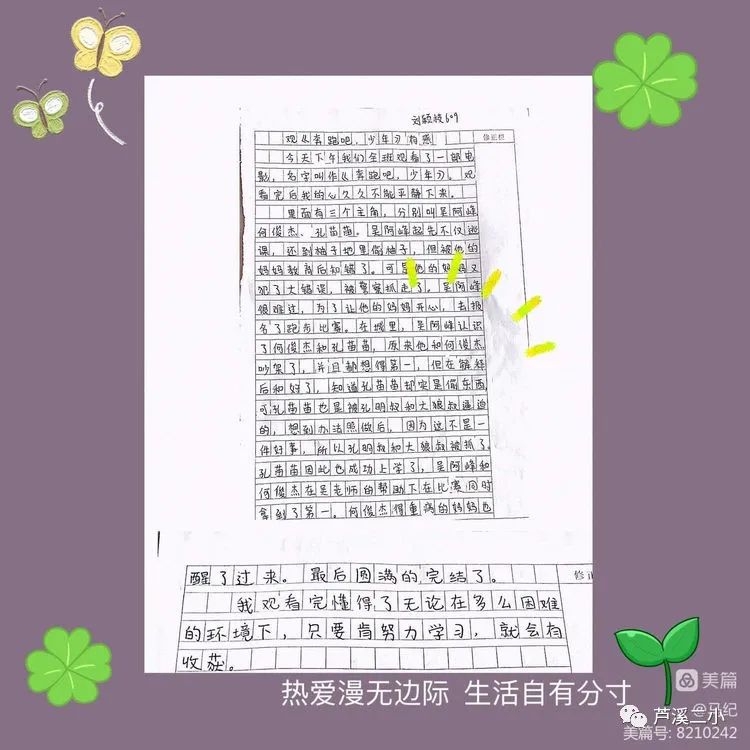 刘颖悦609
修正栏
观《奔跑吧,少年》有感
今天下午我们全班观看了一部电
影,名字叫作《奔跑吧,少年》。观
看完后我的心久久不能平静下来。
里面有三个主角,分别叫吴阿峰
何俊杰、孔苗苗。吴阿峰起先不仅逃
课,还到柚子地里偷柚子,但被他的
妈妈教育后知错了。可是他的妈妈又
犯了大错误,被警察抓走了。吴阿峰
很难过,为了让他的妈妈开心,去报
名了跑步比赛。在城里,吴阿峰认识
了何俊杰和孔苗苗,原来他和何俊杰
吵架了,并且都想得第一,但在解释
后和好了,知道孔苗苗却实是偷东西,
可孔苗苗也是被孔明叔和大狼叔逼迫
的,想到办法照做后,因为这不是一
件好事,所以孔明叔和大狼叔被抓了。
孔苗苗因此也成功上学了,吴阿峰和
何俊杰在吴老师的帮助下在比赛同时
拿到了第一。何俊杰得重病的妈妈也
醒了过来。最后圆满的完结了。
修正
我观看完懂得了无论在多么困难
的环境下,只要肯努力学习,就会有
收获。
热爱漫无边际 生活自有分寸
美篇
芦溪二小
美篇号: 8210242